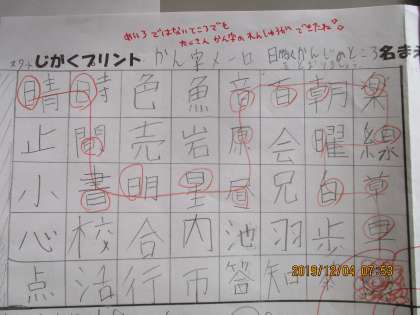 めいろではないところでも
たくさんかん字のれんしゅうができたね
スタート じがくプリント かん字メーロ 日のつくかんじのところ 名まえ
をとおりましょう
晴 時 色 魚 音 春 朝 楽
止 間 売 岩 原 会 曜 線
小 書 明 星 昼 兄 百 草
心 校 合 内 池 羽 歩 車
点 活 行 市 答 知
2019/12/04 07:53